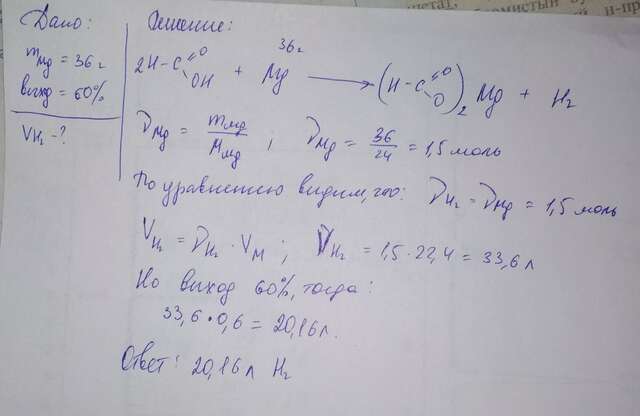 Дано:
m Mg = 36 г
выход = 60%
V H2 - ?
Решение:
36 г
2H-C=O OH + Mg → (H-C=O O)2 Mg + H2
ν Mg = m Mg / M Mg ; ν Mg = 36/24 = 1,5 моль
По уравнению видим, что: ν H2 = ν Mg = 1,5 моль
V H2 = ν H2 · V M ; V H2 = 1,5 · 22,4 = 33,6 л
Но выход 60%, тогда:
33,6 · 0,6 = 20,16 л.
Ответ: 20,16 л H2